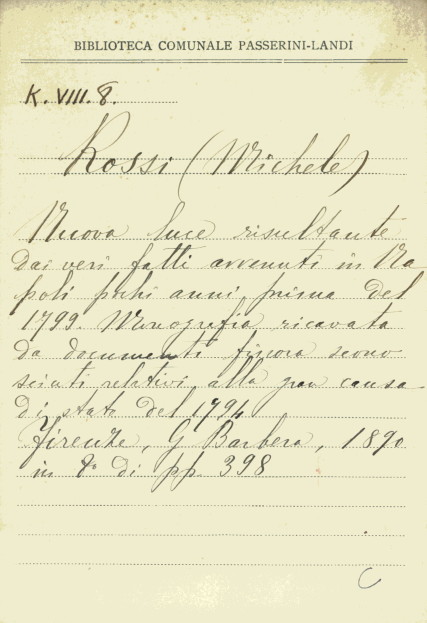 BIBLIOTECA COMUNALE PASSERINI-LANDI
K. VIII. 8.
Rossi (Michele)
Nuova luce risultante
dai veri fatti avvenuti in Na
poli pochi anni prima del
1799. Monografia ricavata
da documenti finora scono-
sciuti relativi alla gran causa
di stato del 1794
Firenze, G Barbera, 1890
in 8° di pp. 398
C